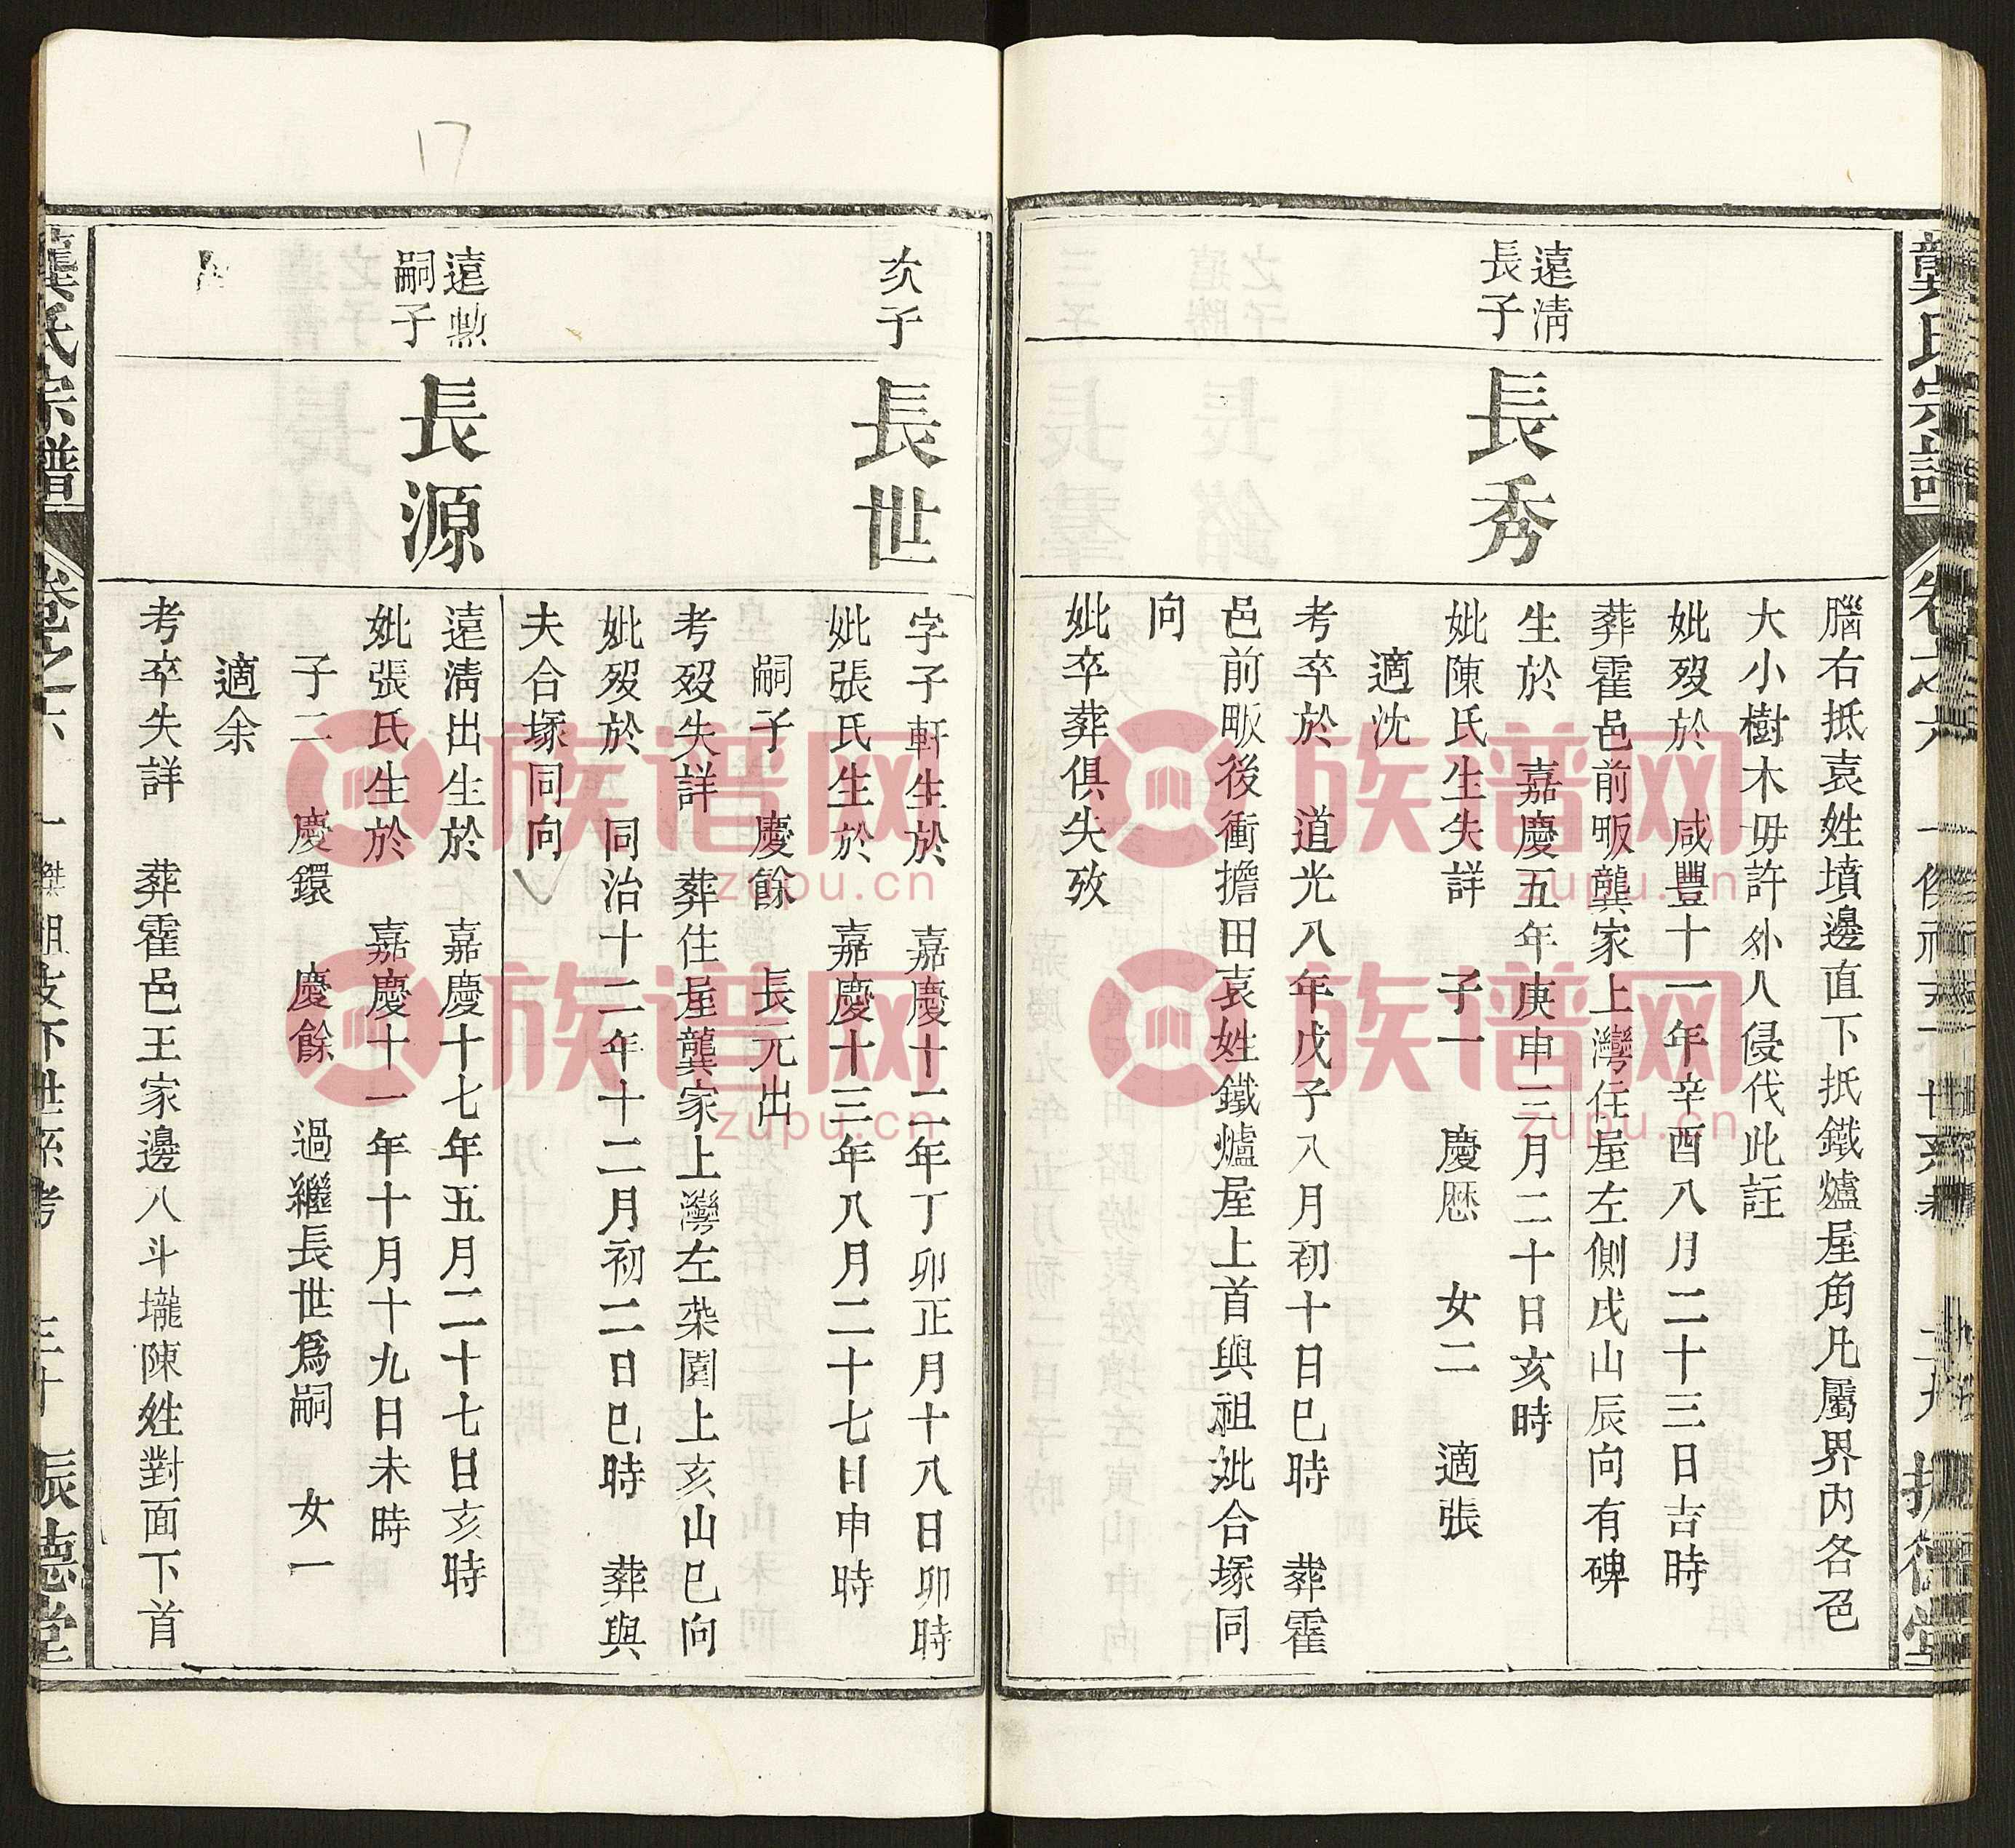 腦右抵袁姓墳邊直下抵鐵爐屋角凡屬界內各色
大小樹木毋許外人侵伐此註
妣歿於 咸豐十一年辛酉八月二十三日吉時
葬霍邑前畈龔家上灣住屋左側戌山辰向有碑
遠清
長子
長秀
生於 嘉慶五年庚申三月二十日亥時
妣陳氏生失詳 子一 慶歷 女二 適張
適沈
考卒於 道光八年戊子八月初十日巳時 葬霍
邑前畈後衝擔田袁姓鐵爐屋上首與祖妣合塚同
向
妣卒葬俱失攷
次子
長世
字子軒生於 嘉慶十二年丁卯正月十八日卯時
妣張氏生於 嘉慶十三年八月二十七日申時
嗣子 慶餘 長元出
考歿失詳 葬住屋龔家上灣左菜園上亥山巳向
妣歿於 同治十二年十二月初二日巳時 葬與
夫合塚同向
遠勲
嗣子
長源
遠清出生於 嘉慶十七年五月二十七日亥時
妣張氏生於 嘉慶十一年十月十九日未時
子二 慶鐶 慶餘 過繼長世爲嗣 女一
適余
考卒失詳 葬霍邑王家邊八斗壠陳姓對面下首
龔氏宗譜 卷之六 三十 振德堂
族谱网
zupu.cn
族谱网
zupu.cn
族谱网
zupu.cn
族谱网
zupu.cn